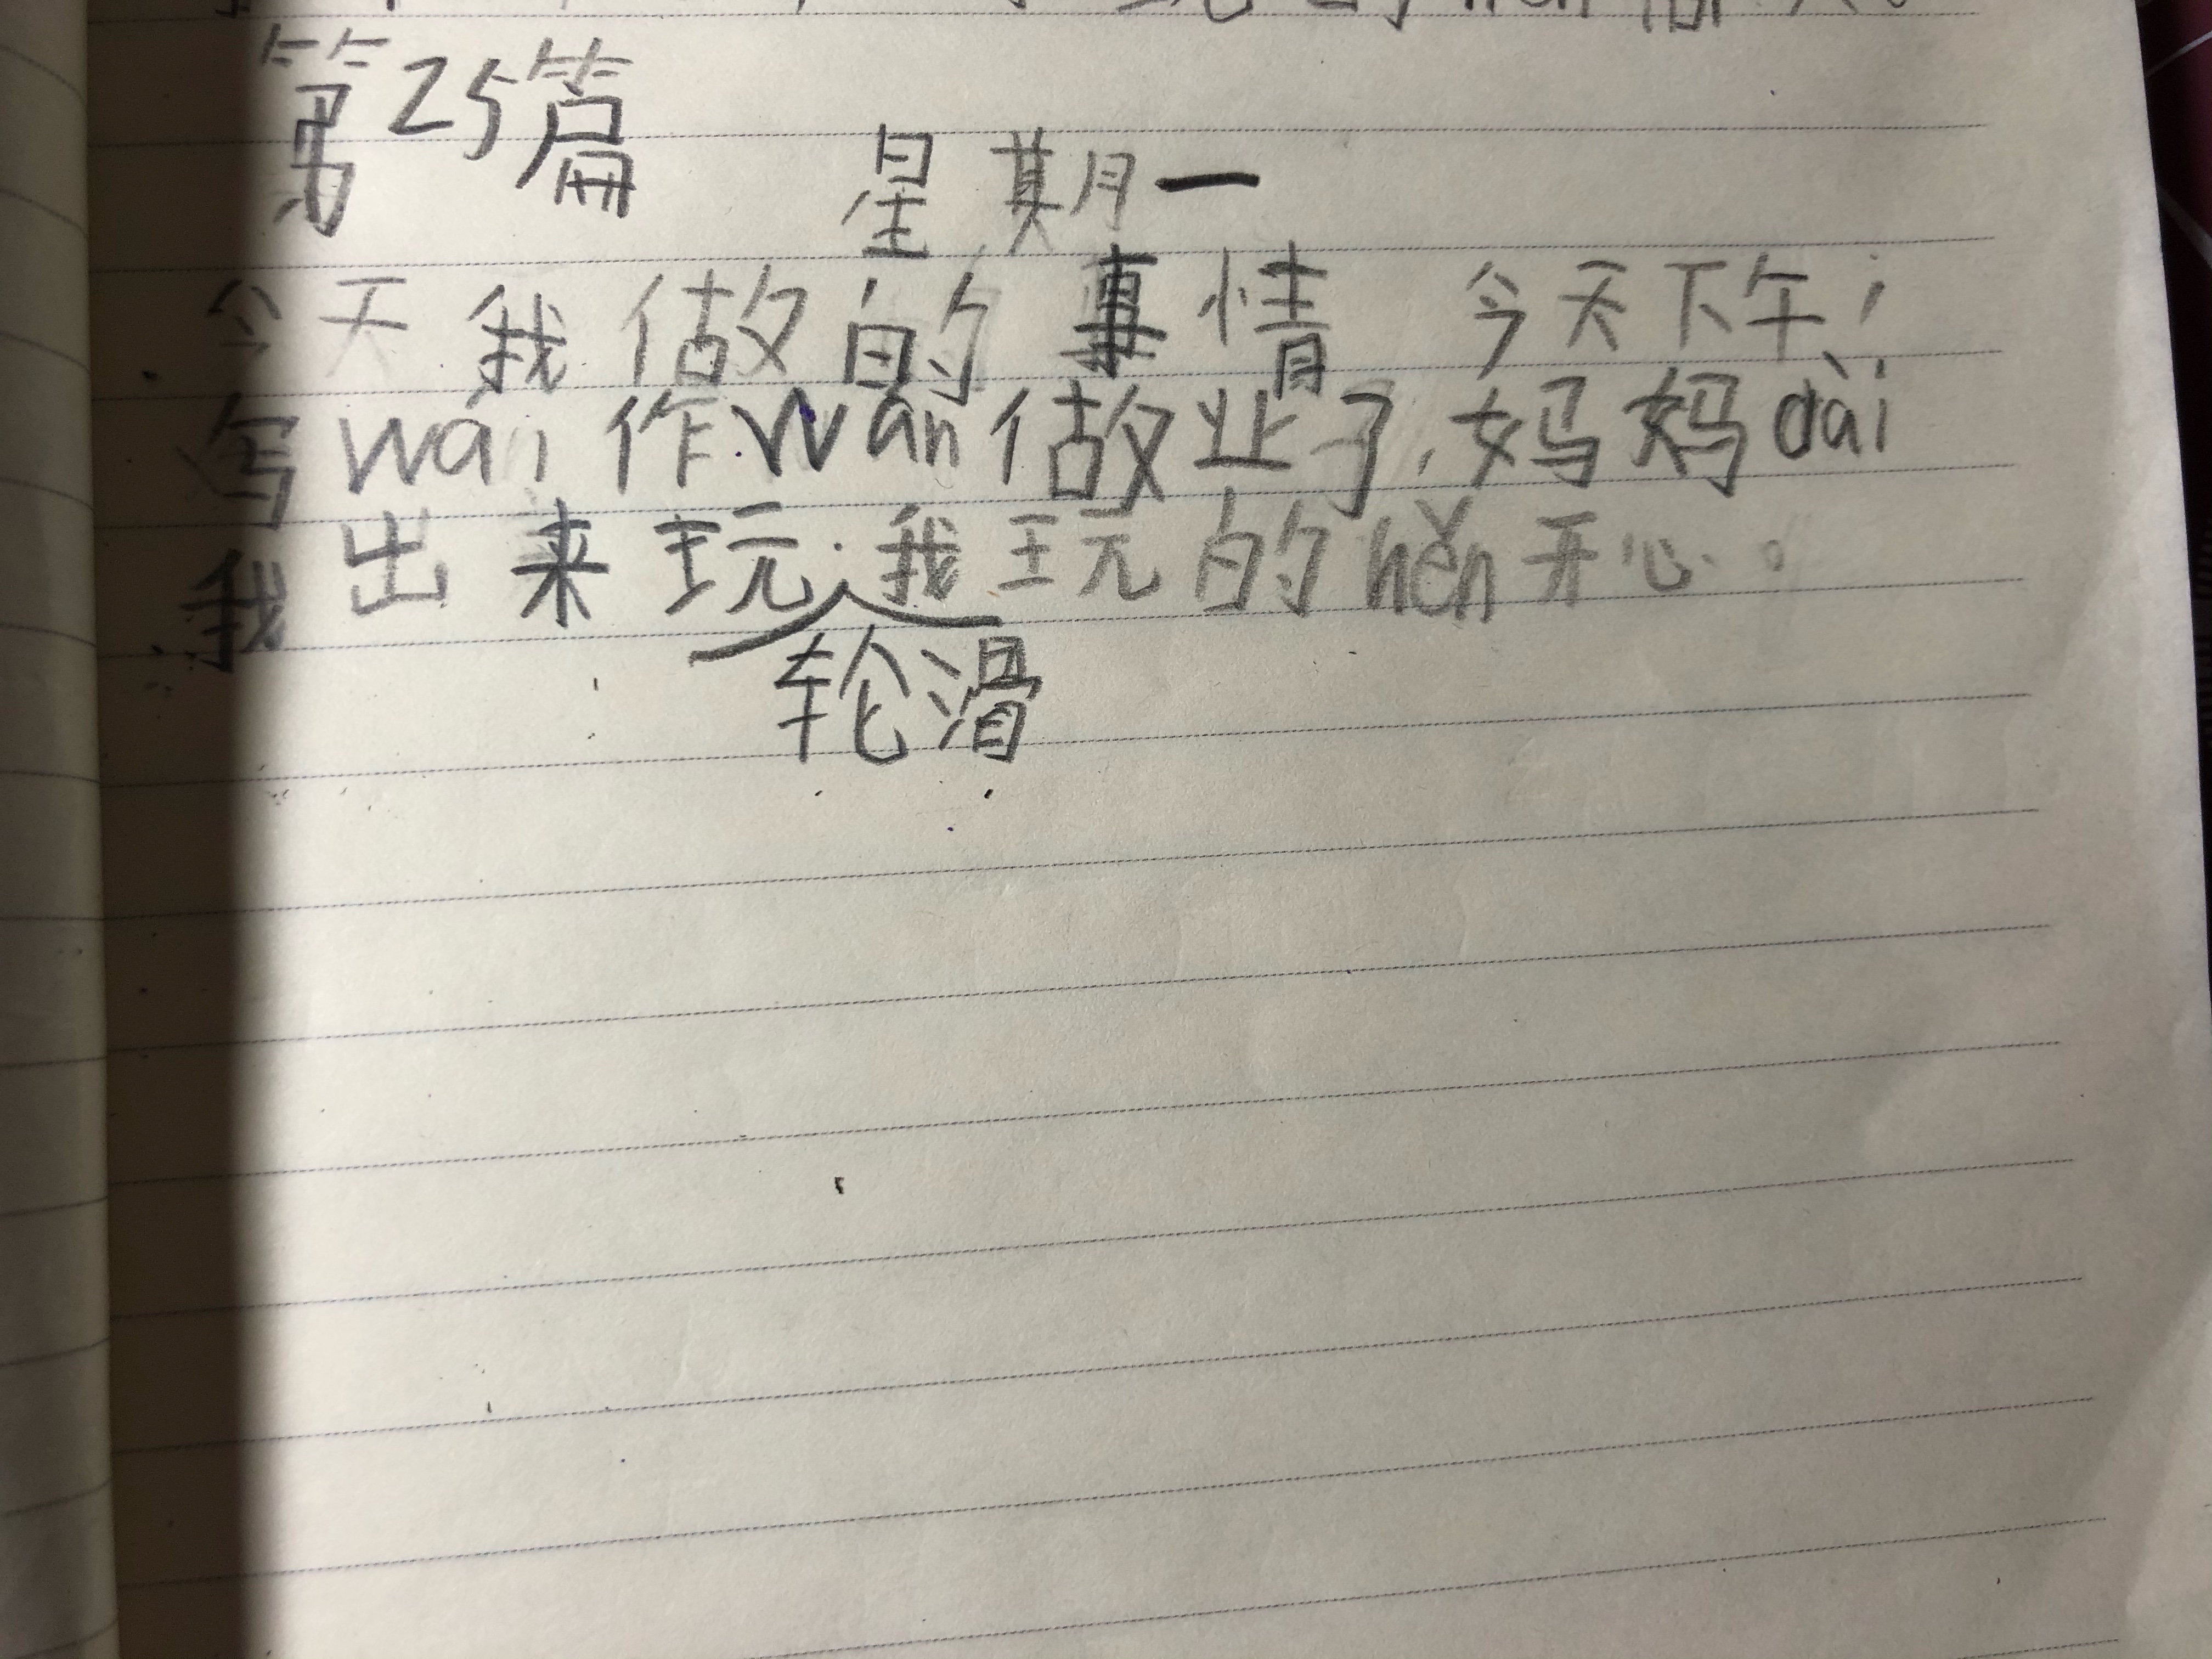 第25篇
星期一
今天我做的事情 今天下午
写wái作wán做业了,妈妈dài
我出来玩.我玩的hěn开心。
轮滑